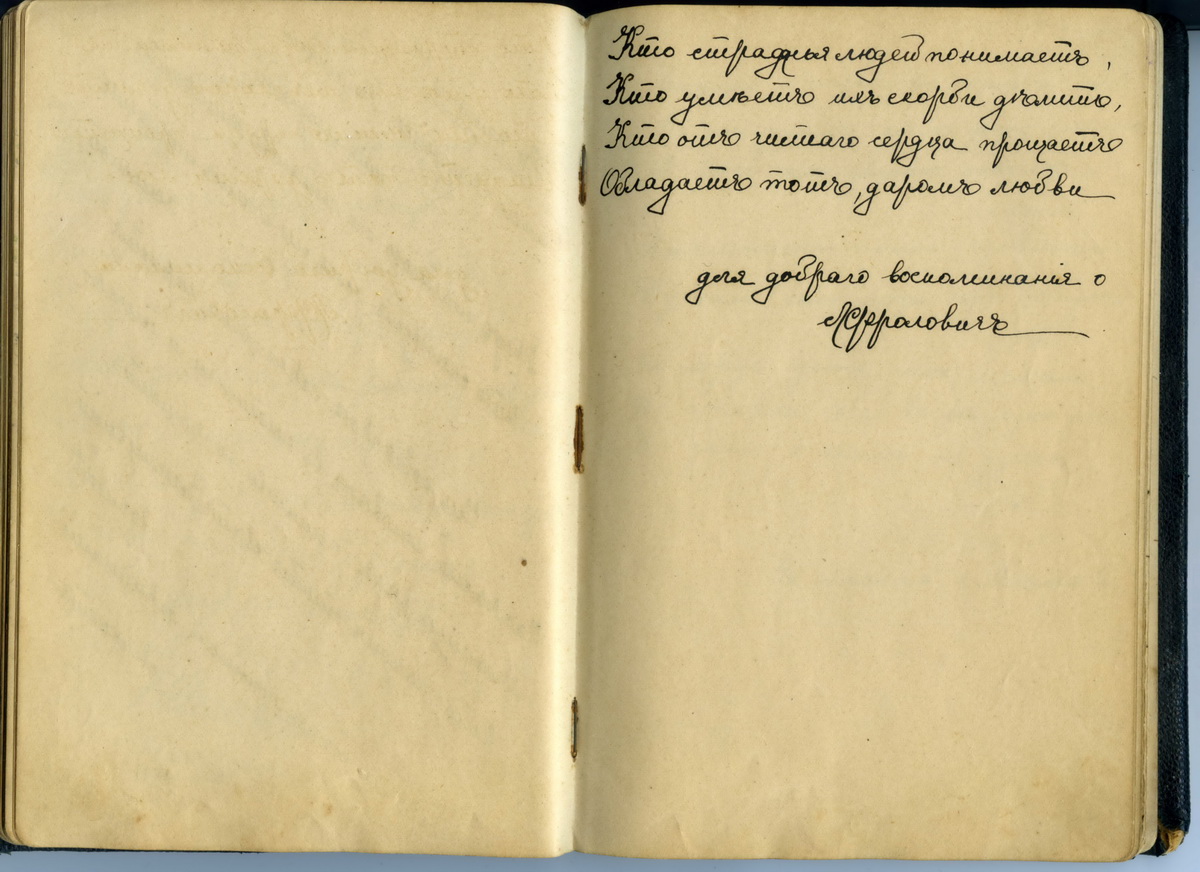 Кто страданья людей понимаетъ,
Кто умѣетъ ихъ скорби дѣлить,
Кто отъ чистаго сердца прощаетъ
Обладаетъ тотъ, даромъ любви
для добраго воспоминанія о
Фроловичъ